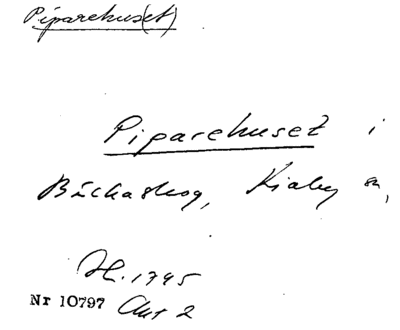 Piparehus(et)
Piparehuset i
Bäckaskog, Kiaby sn,
H. 1795
Nr 10797 Akt 2